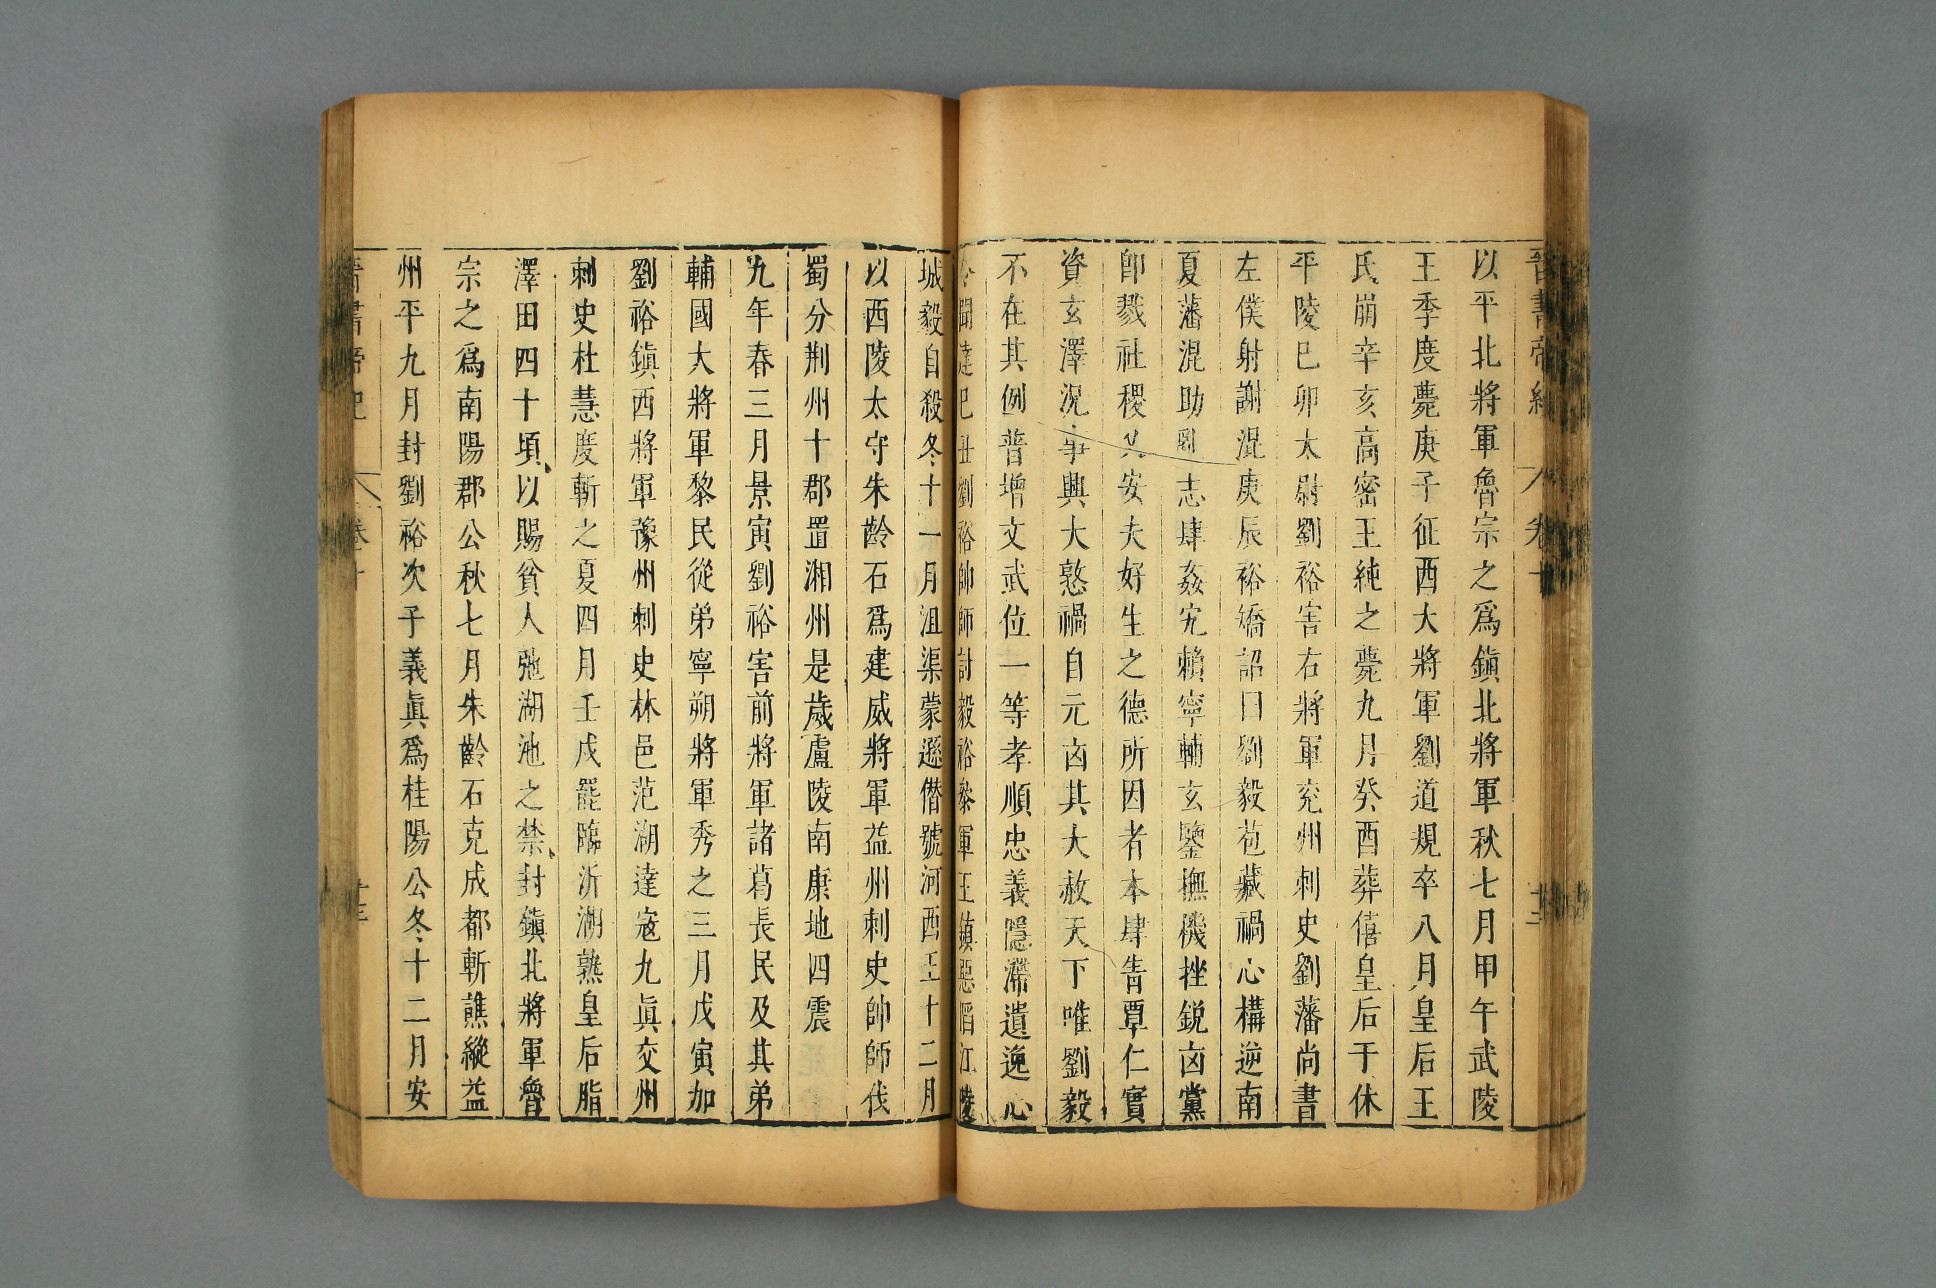 晉書帝紀 卷十 十二
以平北將軍魯宗之爲鎭北將軍秋七月甲午武陵
王季度薨庚子征西大將軍劉道規卒八月皇后王
氏崩辛亥高密王純之薨九月癸酉葬僖皇后于休
平陵巳卯太尉劉裕害右將軍兖州刺史劉藩尚書
左僕射謝混庚辰裕矯詔曰劉毅苞藏禍心構逆南
夏藩混助亂志肆姦宄賴寧輔玄鑒撫機挫銳凶黨
卽戮社稷乂安夫好生之德所因者本肆眚覃仁實
資玄澤況事興大憝禍自元凶其大赦天下唯劉毅
不在其例普增文武位一等孝順忠義隱滯遺逸必
令聞達巳丑劉裕帥師討毅裕參軍王鎮惡陷江陵
城毅自殺冬十一月沮渠蒙遜僭號河西王十二月
以西陵太守朱齡石爲建威將軍益州刺史帥師伐
蜀分荆州十郡置湘州是歲廬陵南康地四震
九年春三月景寅劉裕害前將軍諸葛長民及其弟
輔國大將軍黎民從弟寧朔將軍秀之三月戊寅加
劉裕鎭西將軍豫州刺史林邑范湖達寇九眞交州
刺史杜慧度斬之夏四月壬戌罷臨沂湖熟皇后脂
澤田四十頃以賜貧人弛湖池之禁封鎭北將軍魯
宗之爲南陽郡公秋七月朱齡石克成都斬譙縱益
州平九月封劉裕次子義眞爲桂陽公冬十二月安
晉書帝紀 卷十 十三